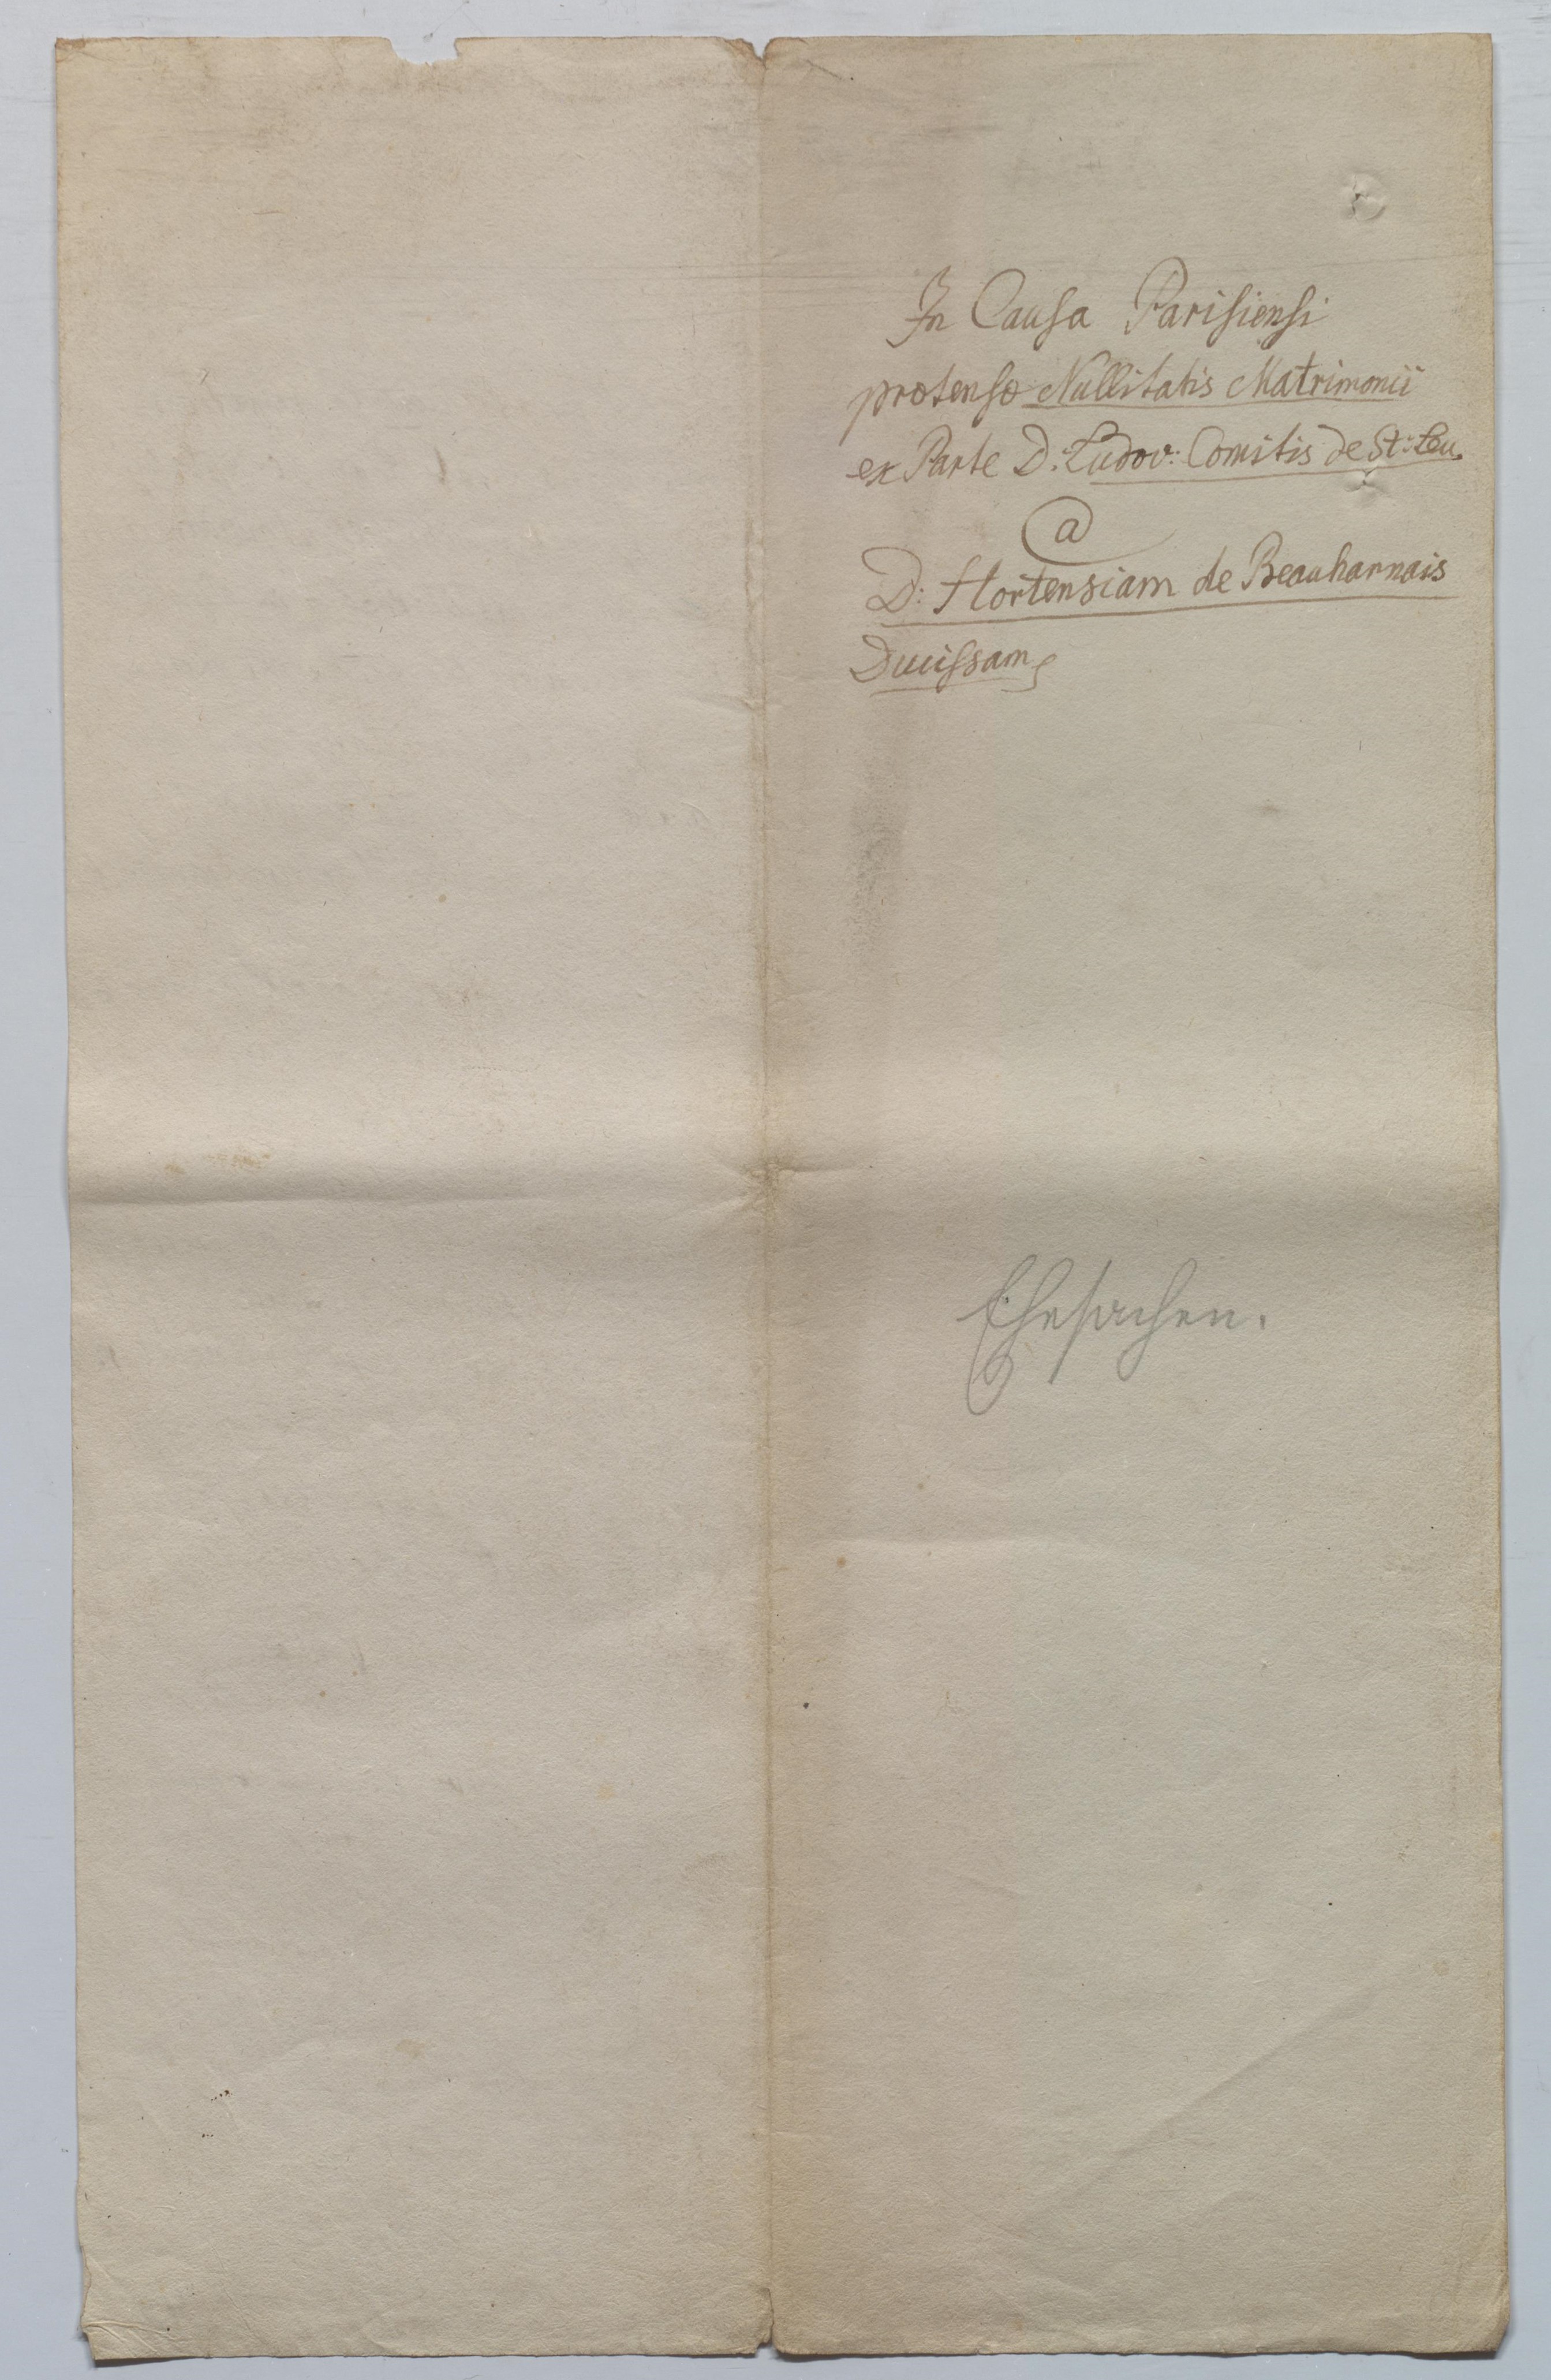 In Causa Parisiensi
prætensæ Nullitatis Matrimonii
ex Parte D: Ludov: Comitis de St: Leu
@
D: Hortensiam de Beauharnais
Ducissam
Ehesachen.